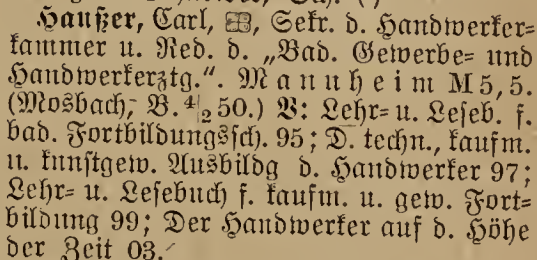 Haußer, Carl, ⌧, Sekr. d. Handwerker=
kammer u. Red. d. „Bad. Gewerbe= und
Handwerkerztg.“. Mannheim M 5, 5.
(Mosbach, B. 4|2 50.) V: Lehr= u. Leseb. f.
bad. Fortbildungssch. 95; D. techn., kaufm.
u. kunstgew. Ausbildg d. Handwerker 97;
Lehr= u. Lesebuch f. kaufm. u. gew. Fort=
bildung 99; Der Handwerker auf d. Höhe
der Zeit 03.